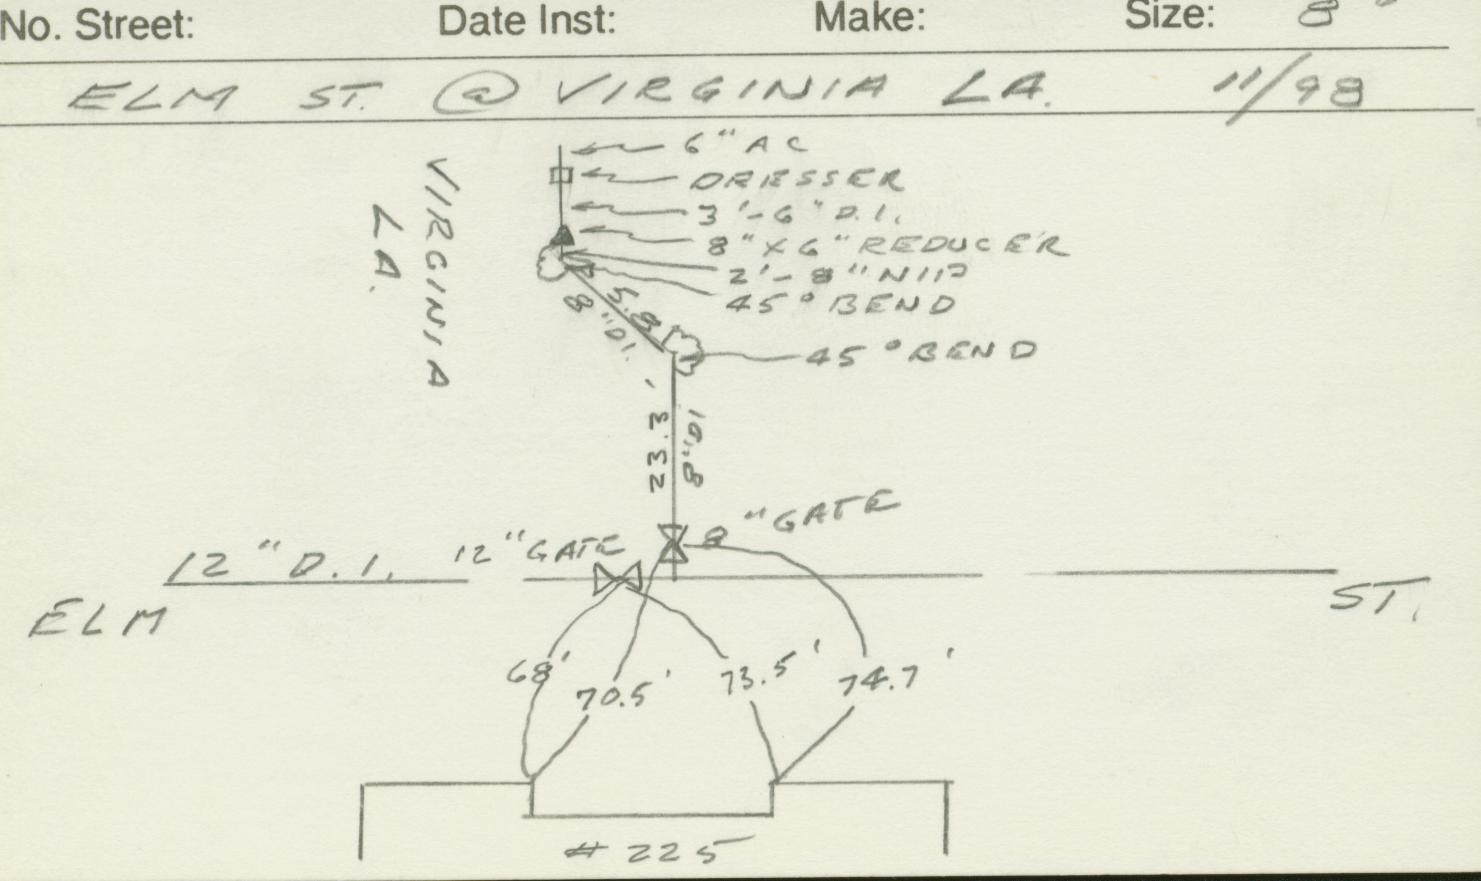 No. Street: Date Inst: Make: Size: 8"
ELM ST. @ VIRGINIA LA. 11/98
VIRGINIA
LA.
6" AC
DRESSER
3'-6" D.I.
8" X 6" REDUCER
2'-8" NIP
45° BEND
5.8
8" D.I.
45° BEND
23.3'
8" D.I.
8" GATE
12" D.I. 12" GATE
ELM ST.
68' 70.5' 73.5' 74.7'
# 225